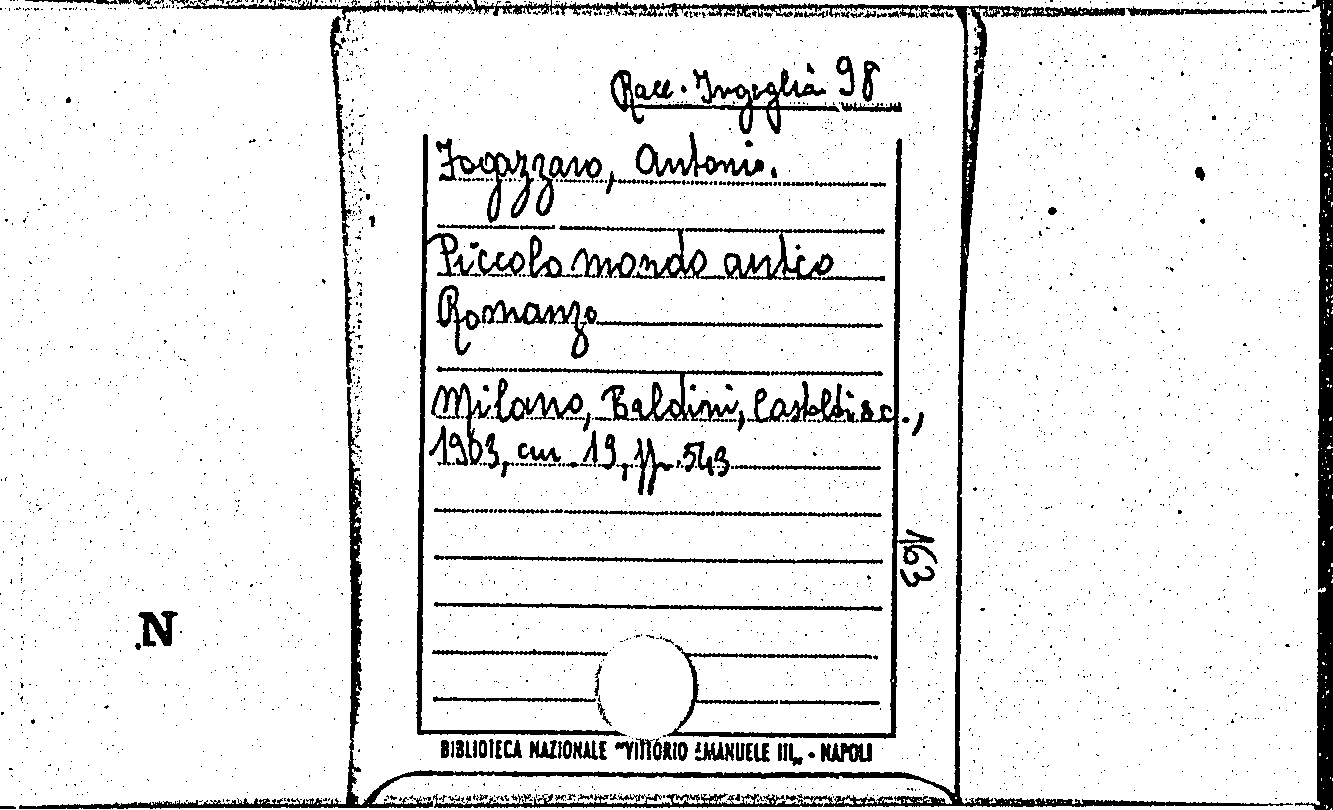 Racc. Ingeglia 98
Fogazzaro, Antonio.
Piccolo mondo antico
Romanzo
Milano, Baldini, Castoldi & C.,
1903, cm. 19, pp. 543
163
N
BIBLIOTECA NAZIONALE "VITTORIO EMANUELE III„ - NAPOLI